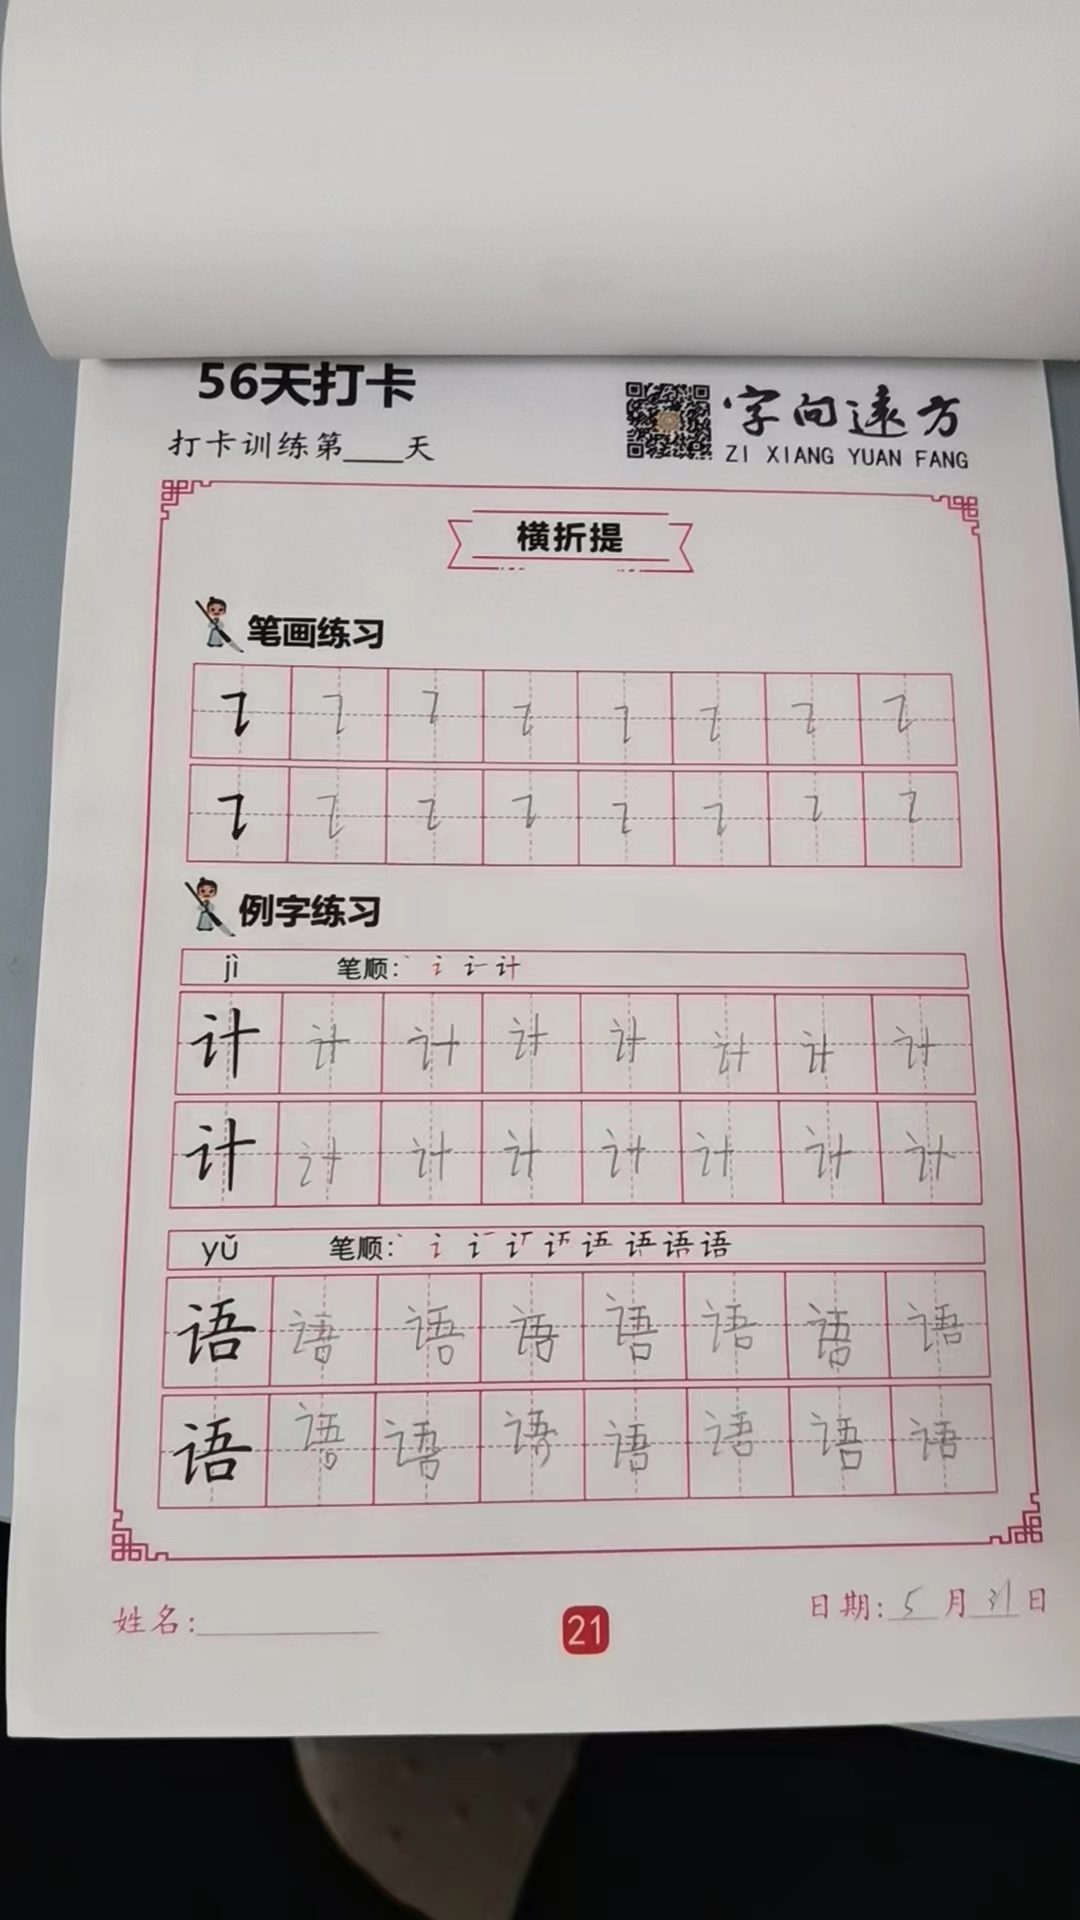 56天打卡
打卡训练第____天
字向远方
ZI XIANG YUAN FANG
横折提
笔画练习
例字练习
jì 笔顺: 丶 讠 计
计 计 计 计 计 计 计 计
计 计 计 计 计 计 计 计
yǔ 笔顺: 丶 讠 语
语 语 语 语 语 语 语 语
语 语 语 语 语 语 语 语
姓名:
21
日期: 5 月 31 日